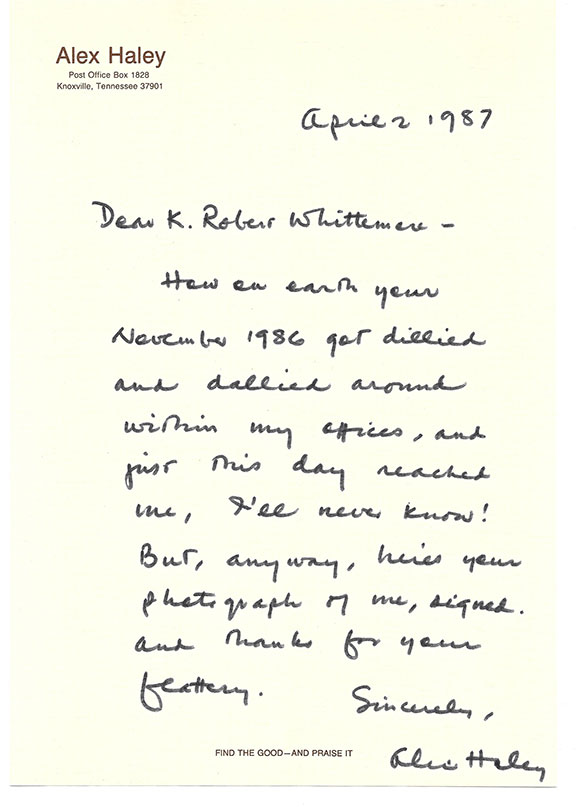 Alex Haley
Post Office Box 1828
Knoxville, Tennessee 37901
April 2 1987
Dear K. Robert Whittemore –
How on earth your
November 1986 got dillied
and dallied around
within my offices, and
just this day reached
me, I'll never know!
But, anyway, here's your
photograph of me, signed.
And thanks for your
flattery.
Sincerely,
Alex Haley
FIND THE GOOD—AND PRAISE IT